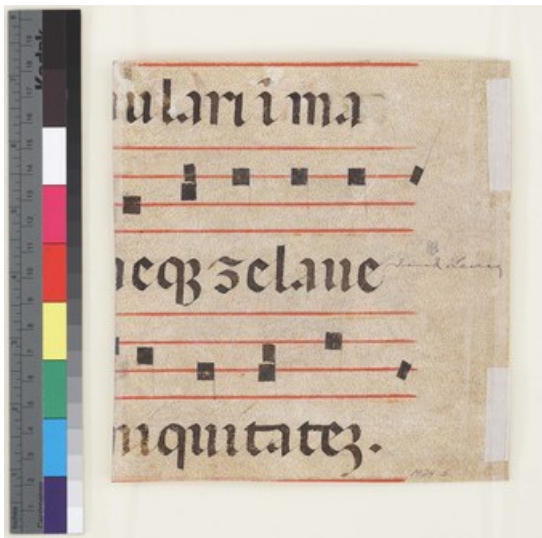 Kodak
ulari i ma
neqꝫ zelaue
niquitateꝫ.